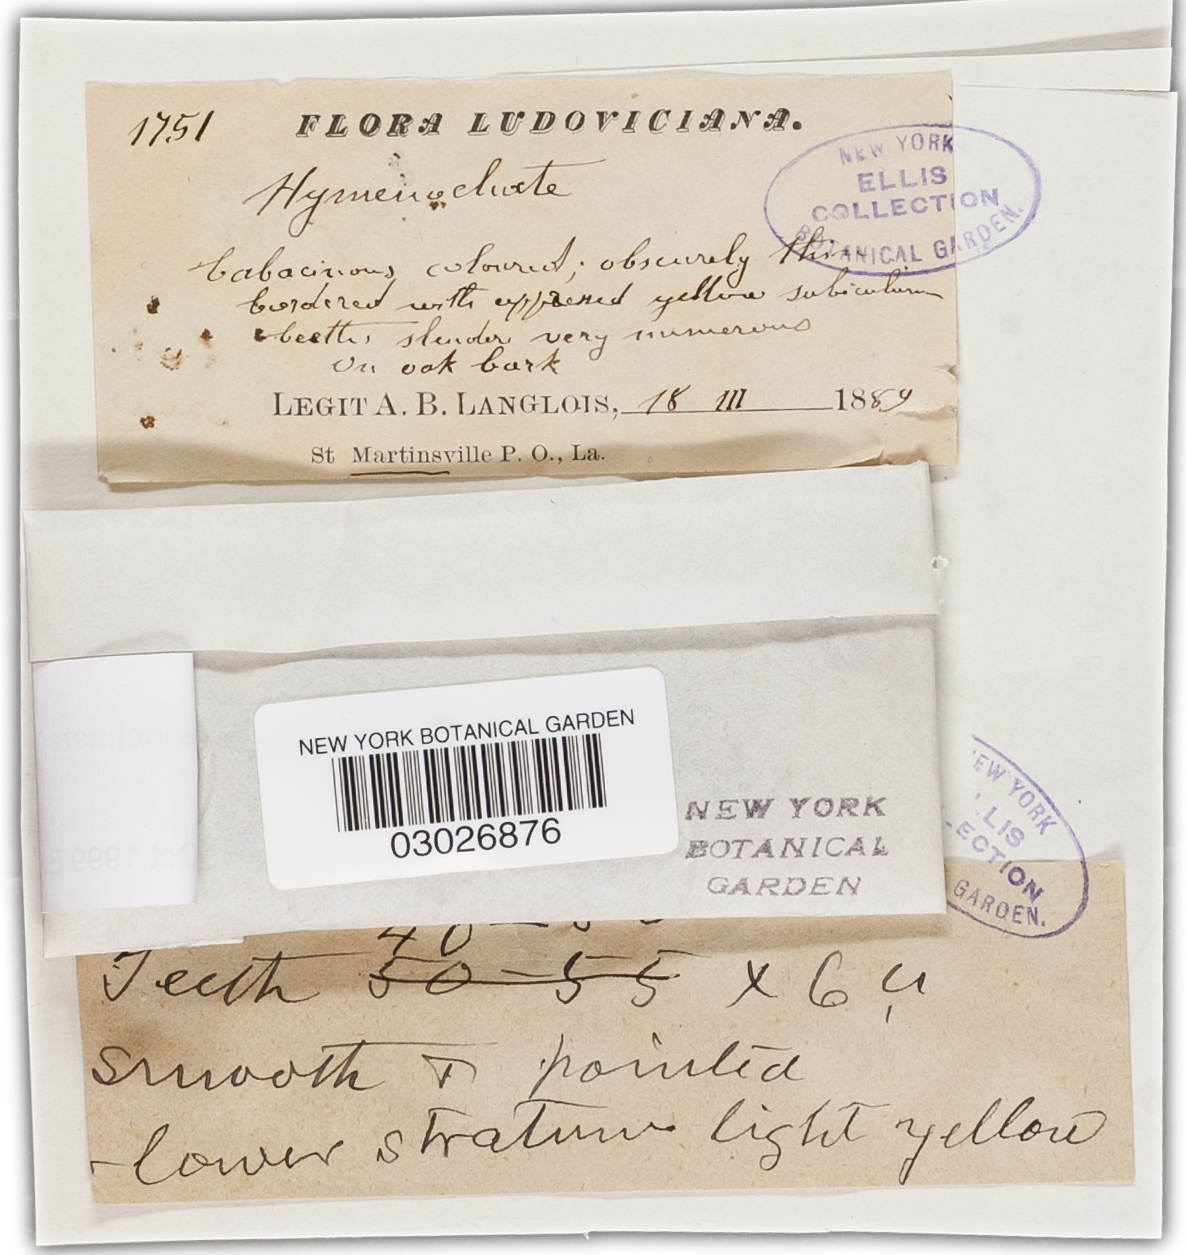 1751
FLORA LUDOVICIANA.
NEW YORK
ELLIS
COLLECTION
BOTANICAL GARDEN.
Hymenochæte
tabacinous coloured; obscurely
bordered with appressed yellow subiculum
teeth slender very numerous
On oak bark
LEGIT A. B. LANGLOIS, 18 III 1889
St Martinsville P. O., La.
NEW YORK BOTANICAL GARDEN
03026876
NEW YORK
BOTANICAL
GARDEN
EW YORK
LIS
ECTION
GARDEN.
Teeth 50-55 x 6 µ
smooth & pointed
lower stratum light yellow